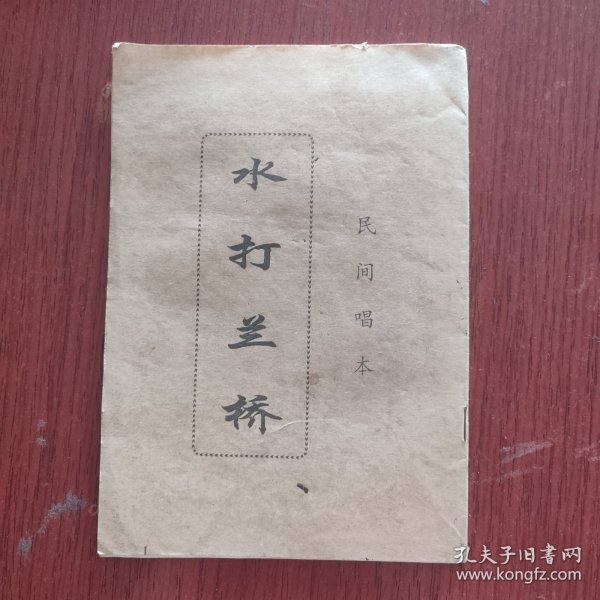 民间唱本
水打兰桥
孔夫子旧书网
www.kongfz.com